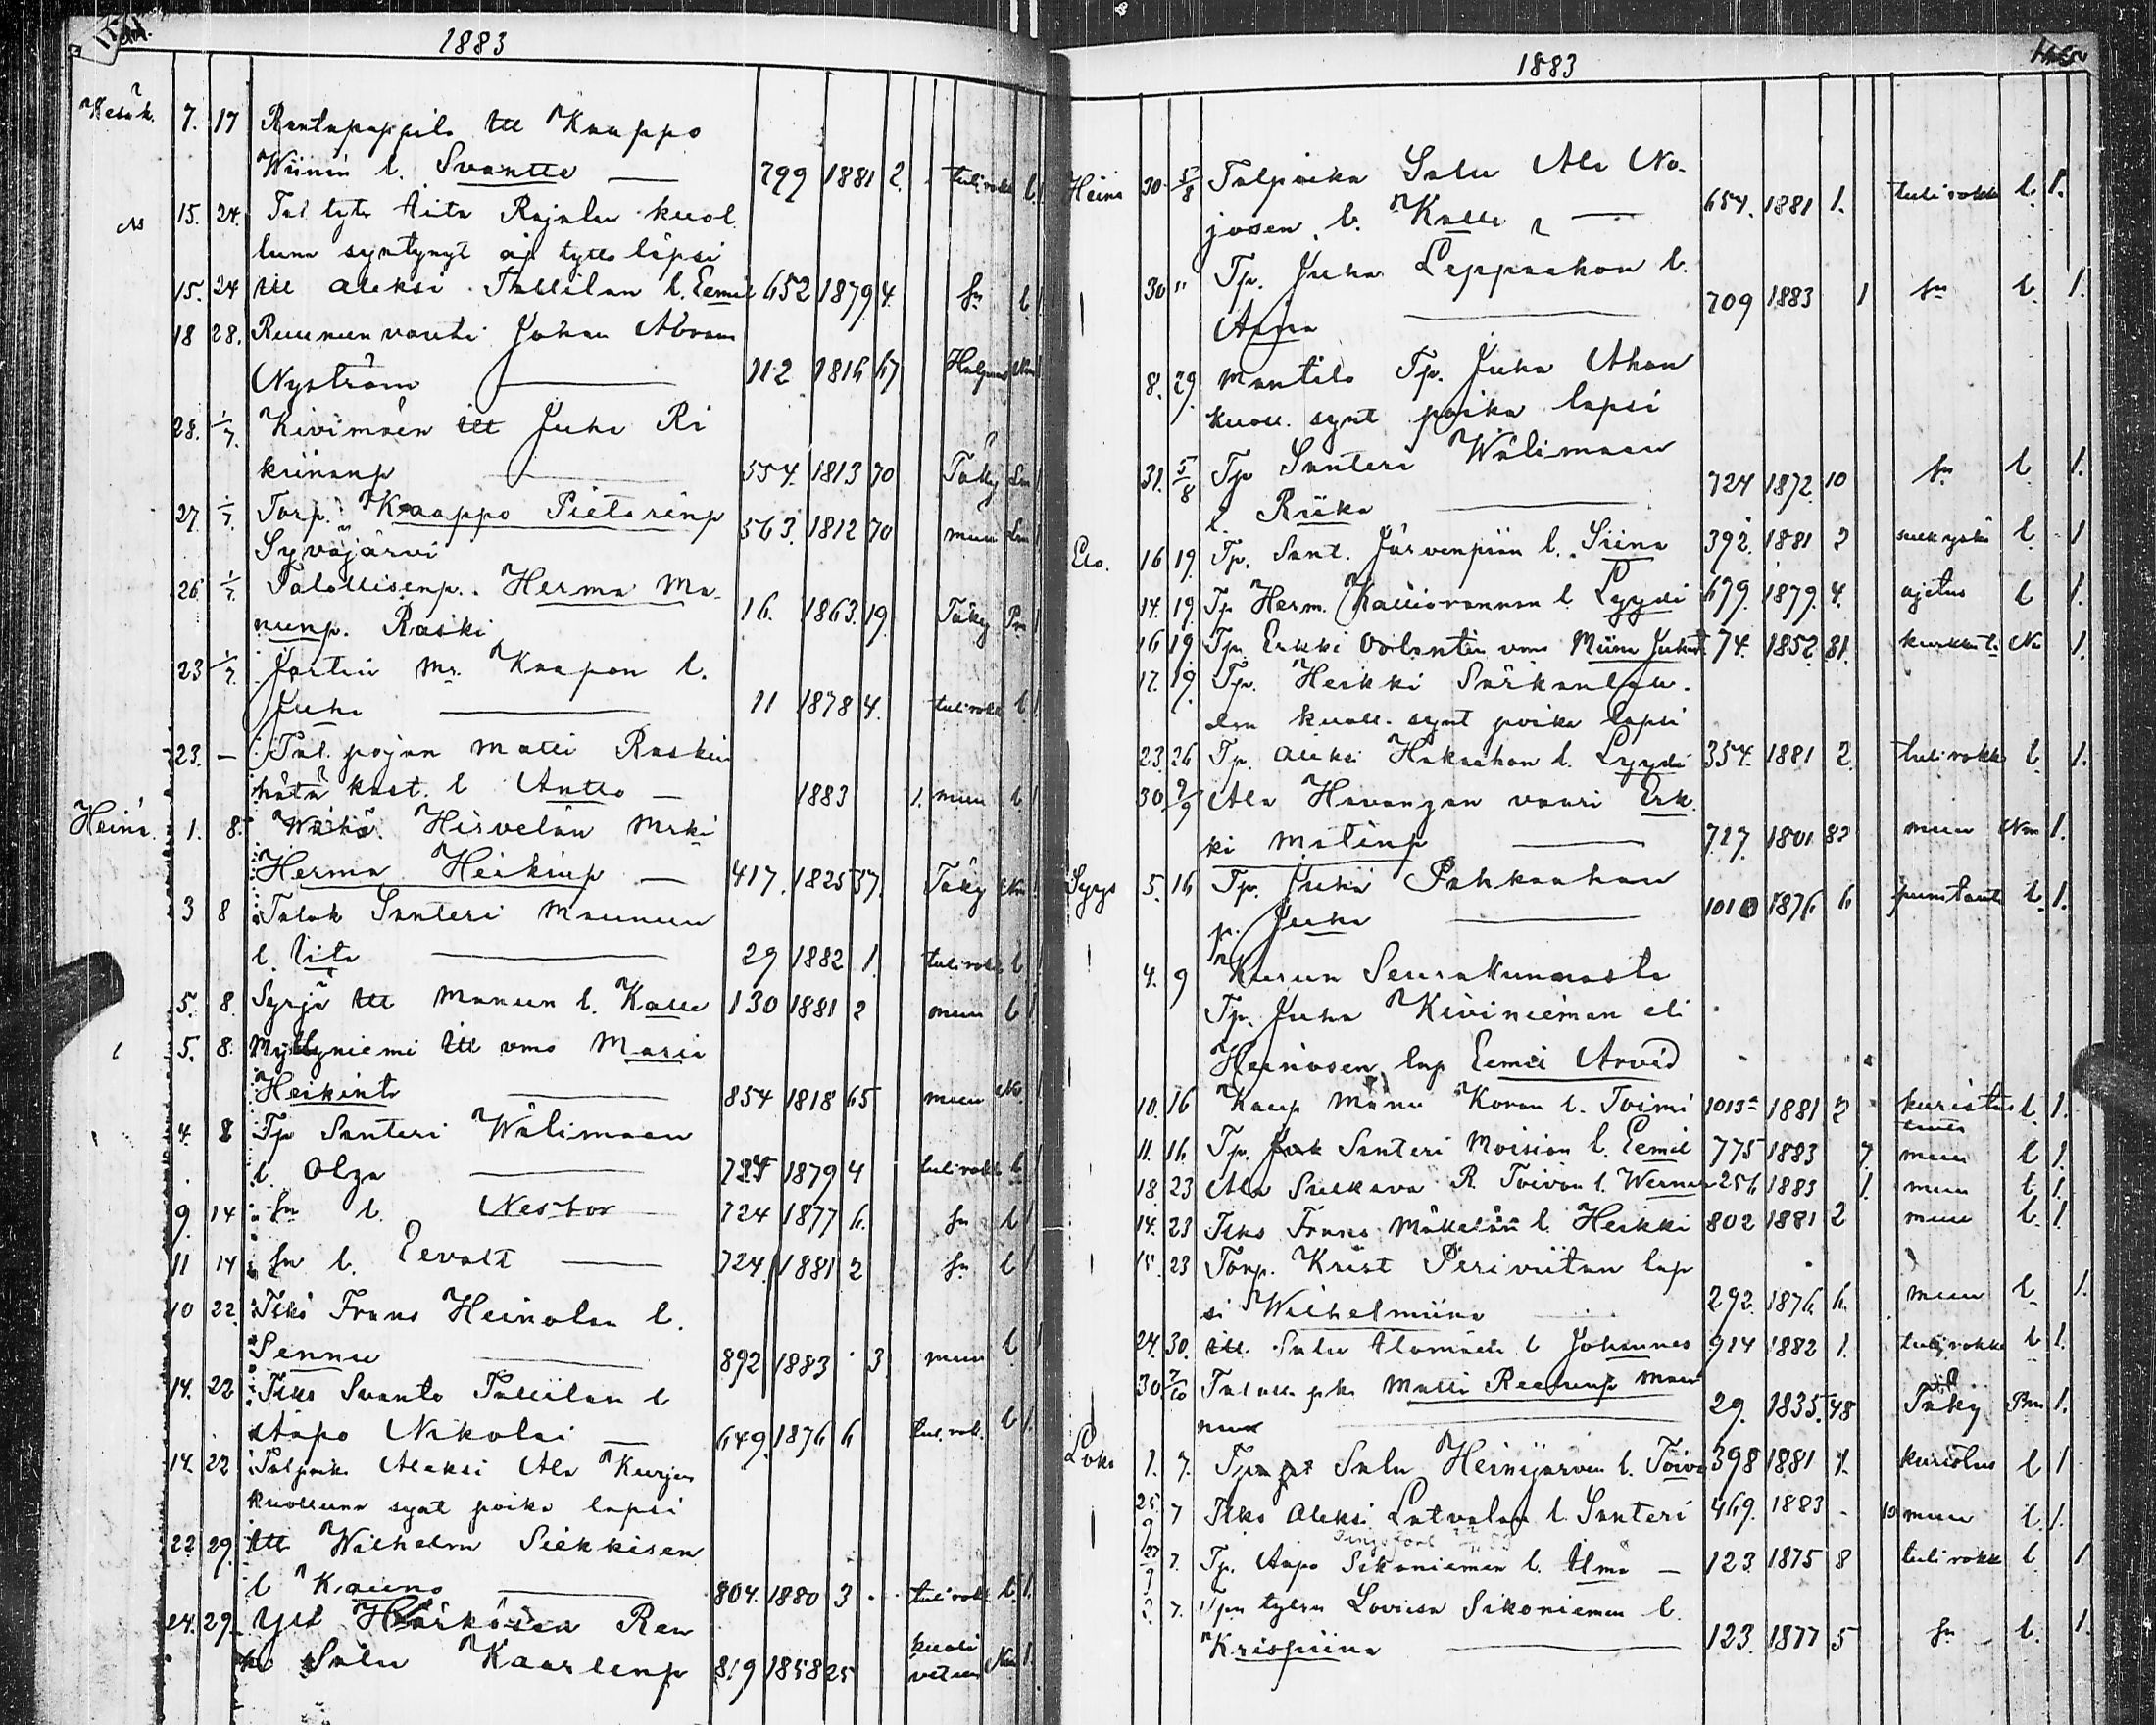 1883
Kesäk. 7. 17 Rantapappila tll Kaappo
Wiinin l. Svante — 799 1881 2. tulirokk l 1
15. 24. Tal. tytr Aita Rajalan kuol
luna syntynyt äp tyttö läpsi
15. 24 tll Aleksi Tallilan l. Eemil 652 1879 4. sn l 1
18 28. Ruunun vouti Johan Abram
Nyström — 112 1816 67 Halpaus Nm
28. 1/7. Kivimäen tll Juha Ri
kiinanp — 554. 1813 70 Täky Lm 1
27. 1/7. Torp. Kaappo Pietarinp 563. 1812 70 muu Lm 1
Syväjärvi
26. 1/7. Talollisenp. Herma Ma
nunp. Raski 16. 1863. 19. Täky Pm 1
23 1/7. Jartin Mr. Kaapon l.
Juha — 11 1878 4. tulirokk l 1
23. — Tal. pojan Matti Raskin
hätä kast. l Antto — 1883 1. muu l 1
Heinä. 1. 8. Wähä Hirvelän Mrki
Herma Heikinp — 417. 1825 57. Täky Nm 1
3 8 Talok Santeri Maunun
l. Aita — 29 1882 1. tulirokk l
5. 8. Syrjä tll Manun l. Kalle 130 1881 2 muu l 1
5. 8. Myllyniemi tll vmo Maria
Heikint. — 854 1818 65 muu Nv. 1
4. 8 Tp Santeri Wälimaan
l. Olga — 724 1879 4 tulirokk l 1
9. 14 sn l. Nestor — 724 1877 6. sn l 1
11 14 sn l. Eevalt — 724. 1881 2 sn l 1
10 22. Itks Frans Heinolan l.
Sennu — 892 1883 3 muu l 1
14. 22 Itks Svante Tallilan l
Aapo Nikolai — 649. 1876 6 tul. rok. l 1
14. 22 Talpoik. Aleksi Ala Kurjen
kuolluna synt poika lapsi
22. 29. tll Wilhelm Siekkisen
l Kauno — 804. 1880 3 tul rokk l. 1.
24. 29. Yli Härkösen Ren
ki Salu Kaarlenp 819 1858 25 kuoli
veteen Nm 1.
1883
Heinä 30 5/8 Talpoika Salu Ala No.
josen. l. Kalle — 654. 1881 1. tulirokk l. 1.
30 " Tp. Juha Leppaahon l.
Aina — 709 1883 1 sn l. 1.
8. 29. Mantila Tp. Juha Ahon
kuoll. synt poika lapsi
31. 5/8 Tp Santeri Wälimaan
l. Riika — 724 1872. 10 sn l 1.
Elo. 16 19. Tp. Sant. Järvenpään l. Siina 392. 1881 2 l 1
14. 19. Tp Herm. Kalliorannan l. Lyydi 679. 1879. 4. ajetus l 1.
16 19 Tp. Erkki Oolantin vmo Miina Juhant. 74. 1852 31. kurkku t. Nv 1.
17. 19. Tp. Heikki Särkanlah.
den kuoll. synt poika lapsi
23. 26 Tp. Aleksi Hakaahon l. Lyydi 354. 1881 2. tulirokk l. 1.
30 2/9 Ala Havangan vaari Erk.
ki Matinp — 727. 1801 82 muu Nm 1.
Syys 5. 16 Tp. Juha Pahkaahon
p. Juha — 1010 1876 6 punatauti l. 1.
4. 9 Kurun Seurakunnasta
Tp. Juha Kiviniemen eli
Heinosen lap Eemil Arvid
10. 16 Kaup Manu Koron l. Toimi 1013 1881 2 kuristus l. 1.
tauti
11. 16. Tp. Santeri Moision l. Eemil 775 1883 7. muu l 1.
18 23 Ala Sulkava R. Toivon l. Werner 256 1883 1. muu l. 1.
14. 23 Itks Frans Mäkelän l. Heikki 802 1881 2 muu l. 1.
15. 23 Torp. Krist Periviitan lap
si Wilhelmiina — 292. 1876 6. muu l. 1.
24. 30. tll. Salu Alamäen l Johannes 914 1882 1. tulirokko l 1.
30 7/10 Talall. pk. Matti Reetrinp Mau
nun — 29. 1835. 48 Täky Pm 1.
Loka 1. 7. Salu Heinijärven l. Toivo 398 1881 1. kuristus l 1
25/9 7 Itks Aleksi Latvalan l. Santeri 469. 1883 10 muu l. 1.
27/9 7. Tp. Aapo Sikoniemen l. Alma — 123. 1875 8 tulirokk l 1
2. 7. Tpn tytrn Loviisa Sikoniemen l.
Krispiina — 123. 1877 5 sn l. 1.